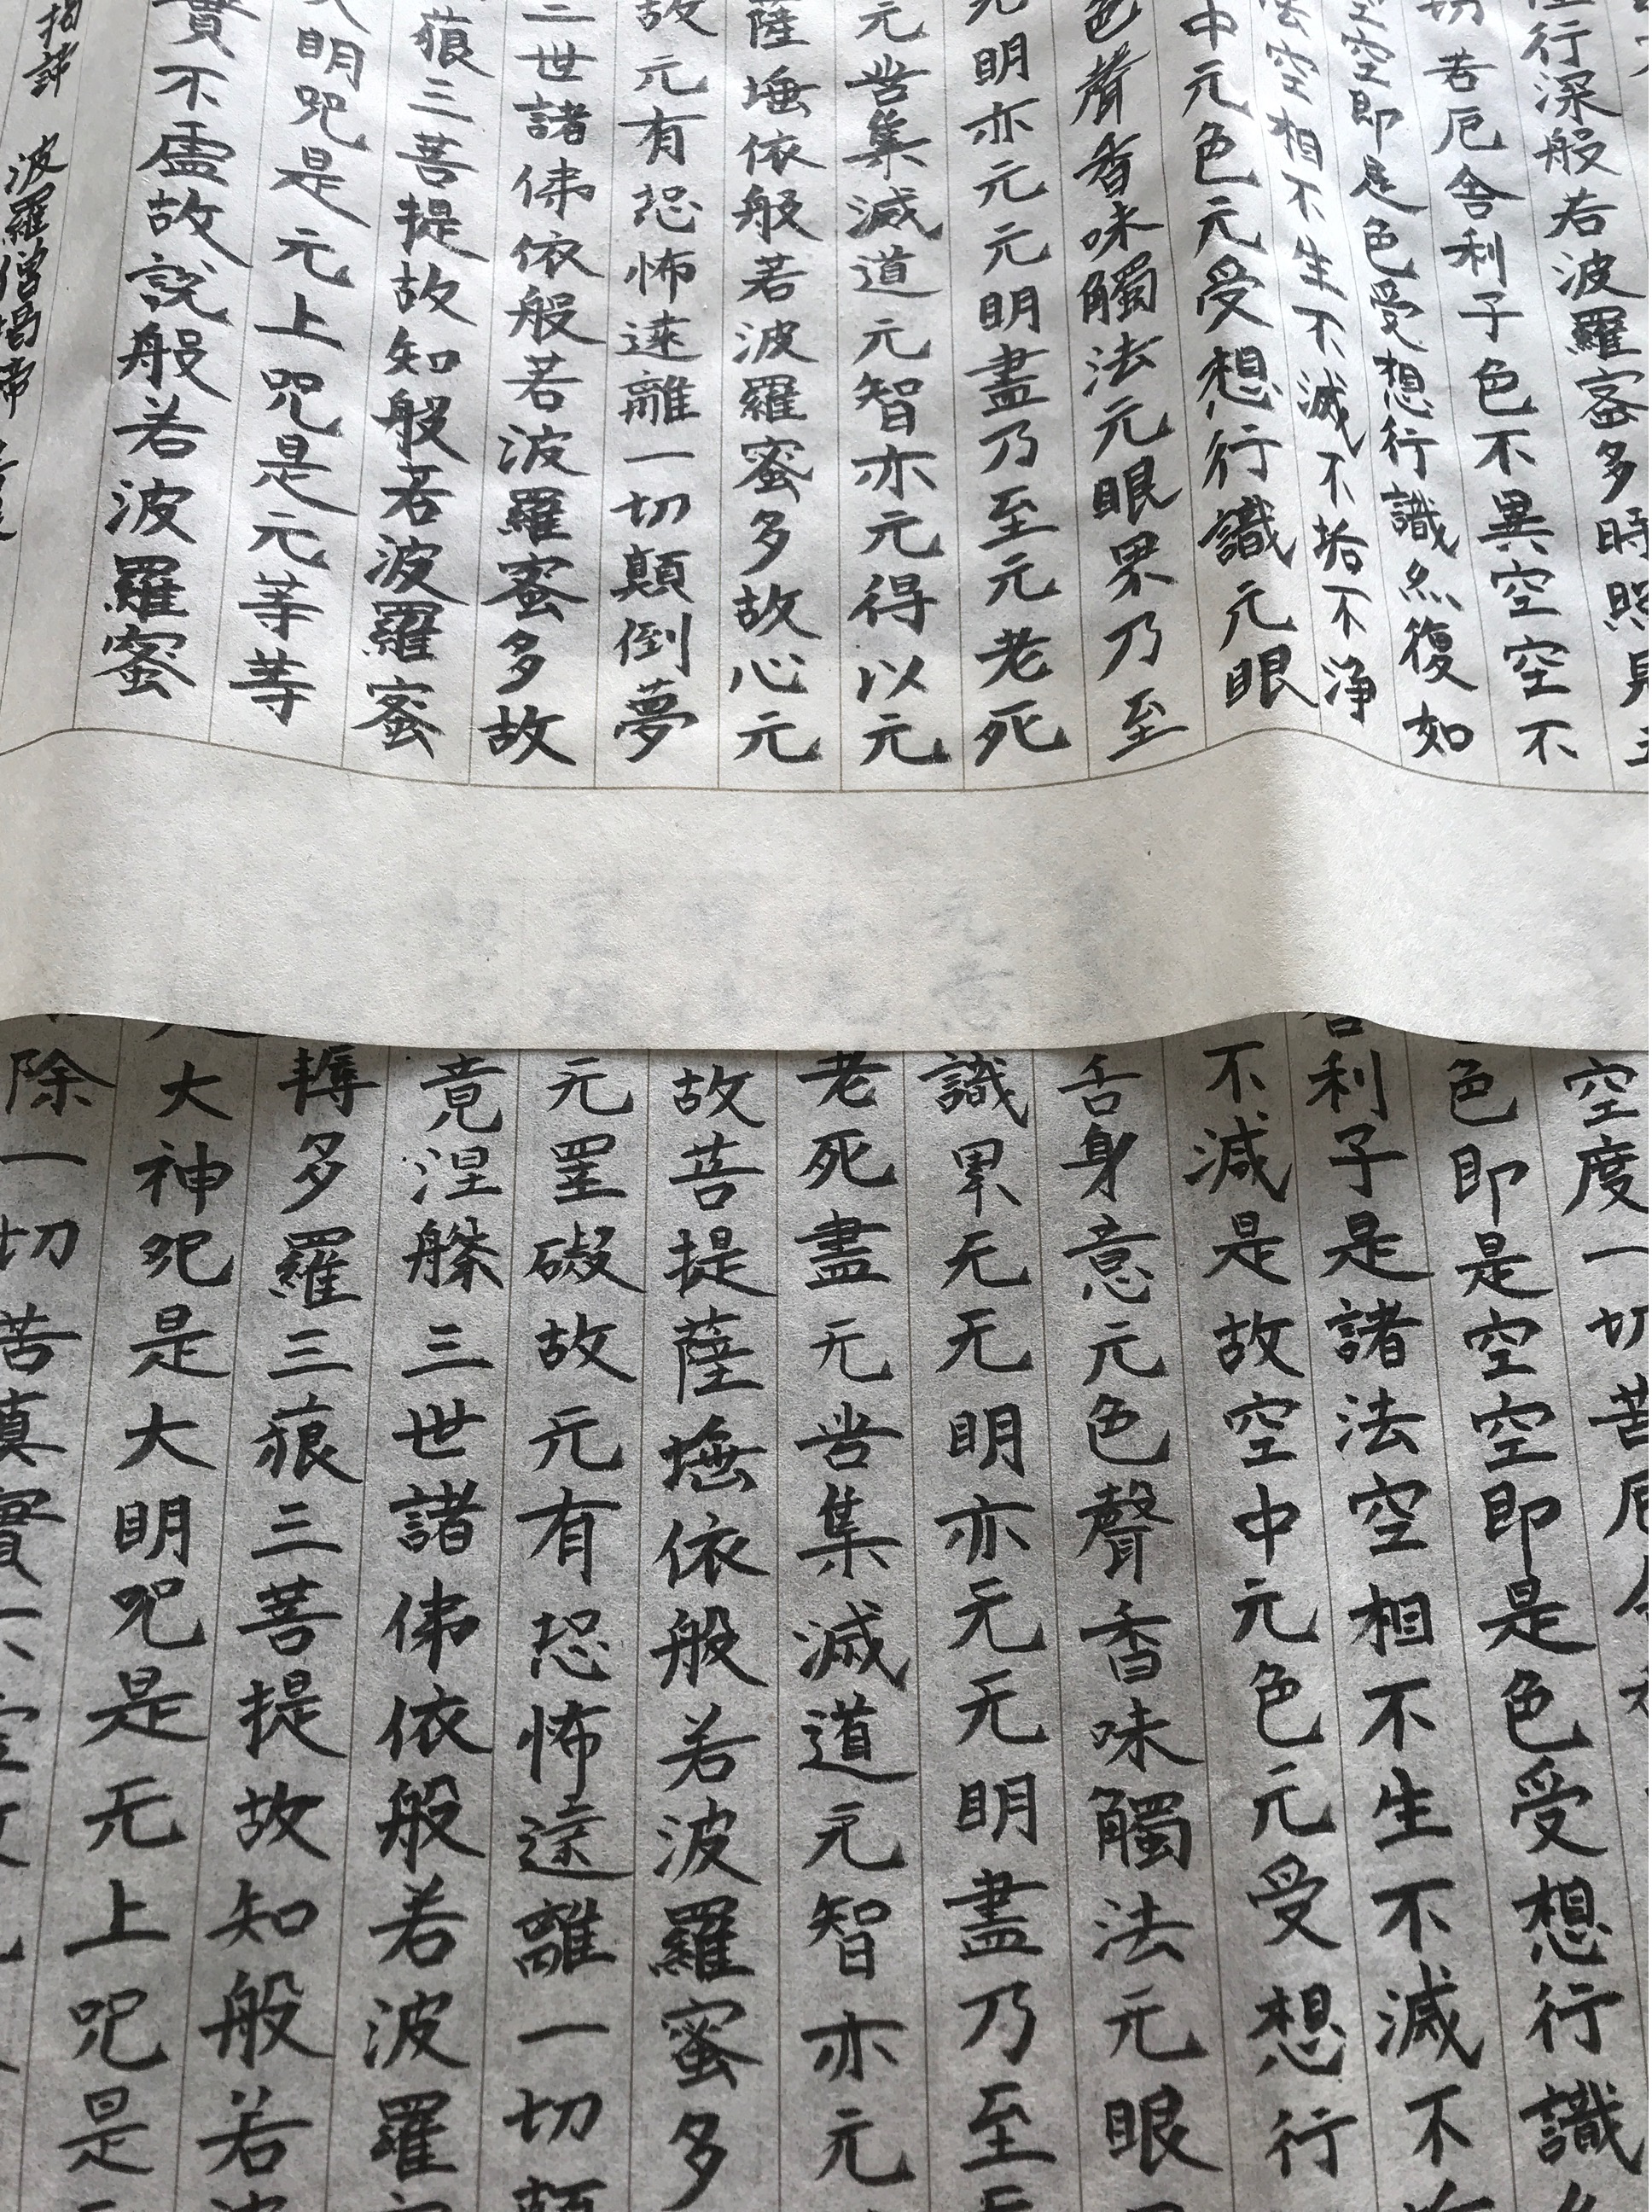 行深般若波羅蜜多時照見
切苦厄舍利子色不異空空不
空空即是色受想行識亦復如
法空相不生不滅不垢不淨
中元色元受想行識元眼
色聲香味觸法元眼界乃至
元明亦元元明盡乃至元老死
元苦集滅道元智亦元得以元
薩埵依般若波羅蜜多故心元
故元有恐怖遠離一切顛倒夢
三世諸佛依般若波羅蜜多故
藐三菩提故知般若波羅蜜
大明咒是元上咒是元等等
實不虛故說般若波羅蜜
揭諦 波羅僧揭帝
空度一切苦厄
色即是空空即是色受想行識
舍利子是諸法空相不生不滅不
不減是故空中元色元受想行
舌身意元色聲香味觸法元眼
識界无无明亦无无明盡乃至
老死盡元苦集滅道元智亦元
故菩提薩埵依般若波羅蜜多
元罣礙故元有恐怖遠離一切顛
竟涅槃三世諸佛依般若波羅
耨多羅三藐三菩提故知般若
大神咒是大明咒是无上咒是
除一切苦真實不